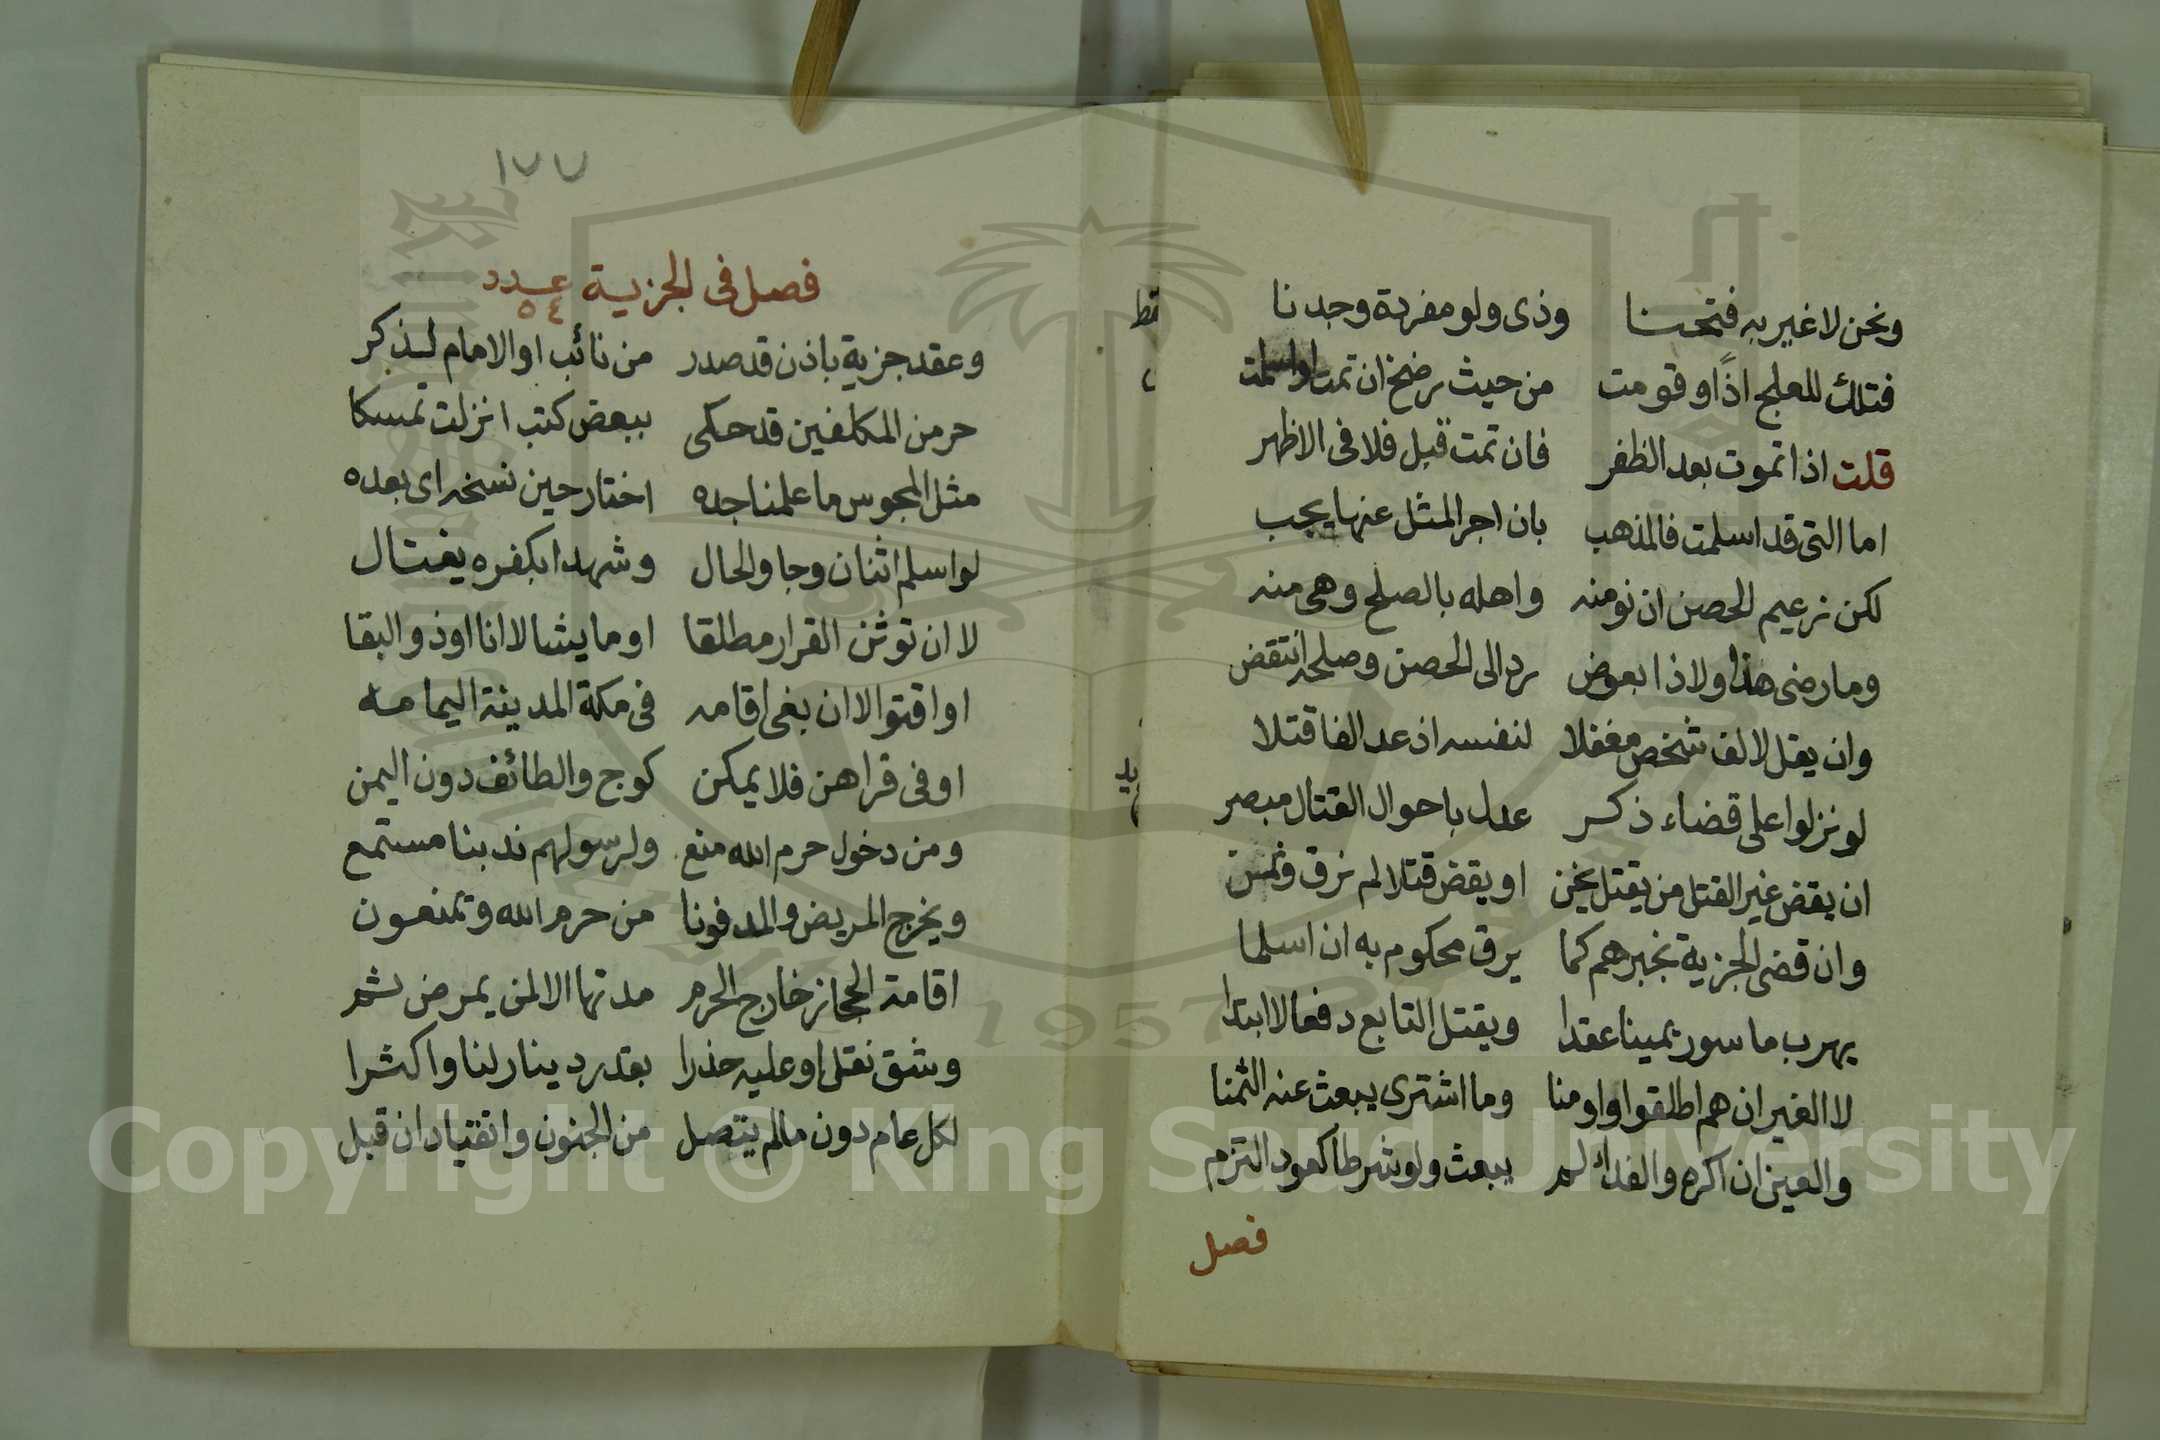 ونحن لا غيربه فتحنا وذى ولو مفردة وجدنا
فتلك للعلج اذًا وقومت من حيث رضخ ان تمت او اسلمت
قلت اذا تموت بعد الظفر فان تمت قبل فلا فى الاظهر
اما التى قد اسلمت فالمذهب بان اجر المثل عنها يجب
لكن زعيم الحصن ان نومنه واهله بالصلح وهى منه
وما رضى هذا ولا ذا بعوض رد الى الحصن وصلحه انتقض
وان يقل لالف شخص مغفلا لنفسه اذ عد الفا قتلا
لو نزلوا على قضاء ذكر عدل باحوال القتال مبصر
ان يقض غير القتل من يقتل يخن او يقض قتلا لم نرق
وان قضى الجزية نجبرهم كما يرق محكوم به ان اسلما
يهرب ماسور يمينا عقدا ويقتل التابع دفعا لا ابتدا
لا الغير ان هم اطلقوا او اومنا وما اشترى يبعث عنه الثمنا
والعين ان اكره والفداء لم يبعث ولو شرطا كعود التزم
فصل
١٧٧
فصل فى الجزية عدد
٥٤
وعقد جزية باذن قد صدر من نائب او الامام لذكر
حر من المكلفين قد حكى ببعض كتب انزلت تمسكا
مثل المجوس ما علمنا جده اختار حين نسخه اى بعده
لو اسلم اثنان وجا والحال وشهدا بكفره يغتال
لا ان توثن القرار مطلقا او ما يشا لا انا او ذو البقا
او اقتوا لا ان بغى اقامه فى مكة المدينة اليمامه
او فى قراهن فلا يمكن كوج والطائف دون اليمن
ومن دخول حرم الله منع ولرسولهم ندبنا مستمع
ويخرج المريض والمدفونا من حرم الله وتمنعون
اقامة الحجاز خارج الحرم مدتها الا لمن يمرض ثم
وشق نقل او عليه حذرا بقدر دينار لنا واكثرا
لكل عام دون مالم يتصل من الجنون وانقياد ان قبل
Copyright © King Saud University
1957